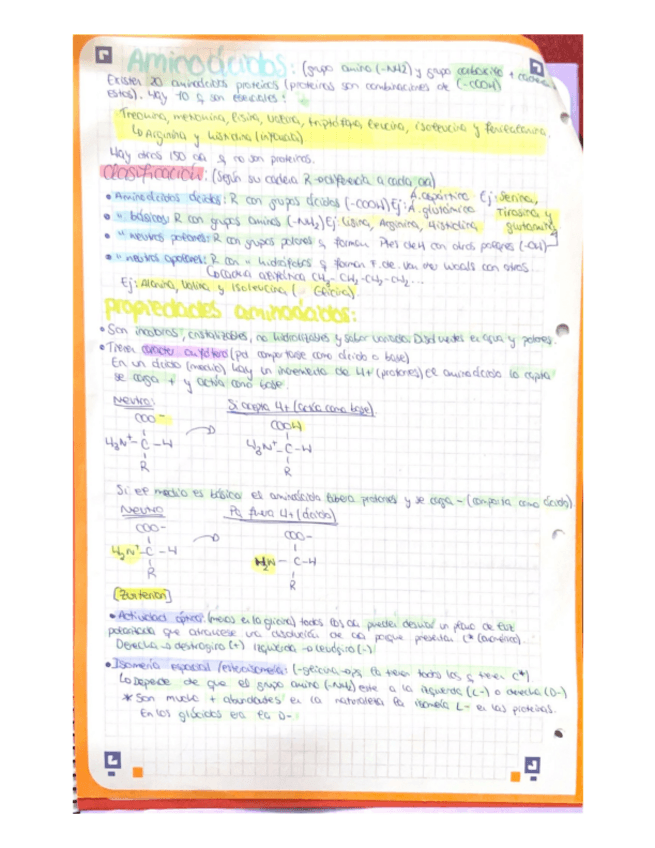 Aminoácidos: (grupo amino (-NH2) y grupo carboxilo
Existen 20 aminoácidos proteicos (proteínas son combinaciones de (-COOH)
estos). Hay 10 q son esenciales:
Treonina, metionina, lisina, valina, triptófano, leucina, isoleucina y fenilalanina.
↳ Arginina y histidina (infancia)
Hay otros 150 aa q no son proteicos.
Clasificación: (según su cadena R diferencia a cada aa)
• Aminoácidos ácidos: R con grupos ácidos (-COOH) Ej: A. aspártico Ej: Serina,
A. glutámico Tirosina y
• " básicos: R con grupos aminos (-NH2) Ej: Lisina, Arginina, Histidina glutamina
• " neutros polares: R con grupos polares q forman Ptes de H con otros polares (-OH)
• " neutros apolares: R con " hidrófobos q forman F. de Van der Waals con otros
↳ cadena alifática CH3-CH2-CH2-CH2...
Ej: Alanina, Valina y Isoleucina ( Glicina).
Propiedades aminoácidos:
• Son incoloros, cristalizables, no hidrolizables y sabor variado. Disolventes en agua y polares.
• Tienen carácter anfótero (pd comportarse como ácido o base)
En un ácido (medio) hay un incremento de H+ (protones) el aminoácido lo capta
se carga + y actúa como base.
Neutro: Si acepta H+ (actúa como base).
COO- COOH
H3N+-C-H H3N+-C-H
R R
Si el medio es básico el aminoácido libera protones y se carga - (comporta como ácido)
Neutro H+ (ácido)
COO- COO-
H3N+-C-H H2N-C-H
R R
[Zwitterión]
• Actividad óptica: (menos en la glicina) todos los aa pueden desviar un plano de luz
polarizada que atraviese una disolución de aa porque presentan C* (asimétrico).
Derecha → dextrógiro (+) Izquierda → levógiro (-)
• Isomería espacial/estereoisomería: (-glicina la tienen todos los q tienen C*)
↳ Depende de que el grupo amino (-NH2) este a la izquierda (L-) o derecha (D-)
* Son mucho + abundantes en la naturaleza la isomería L- en las proteínas.
En los glúcidos era la D-